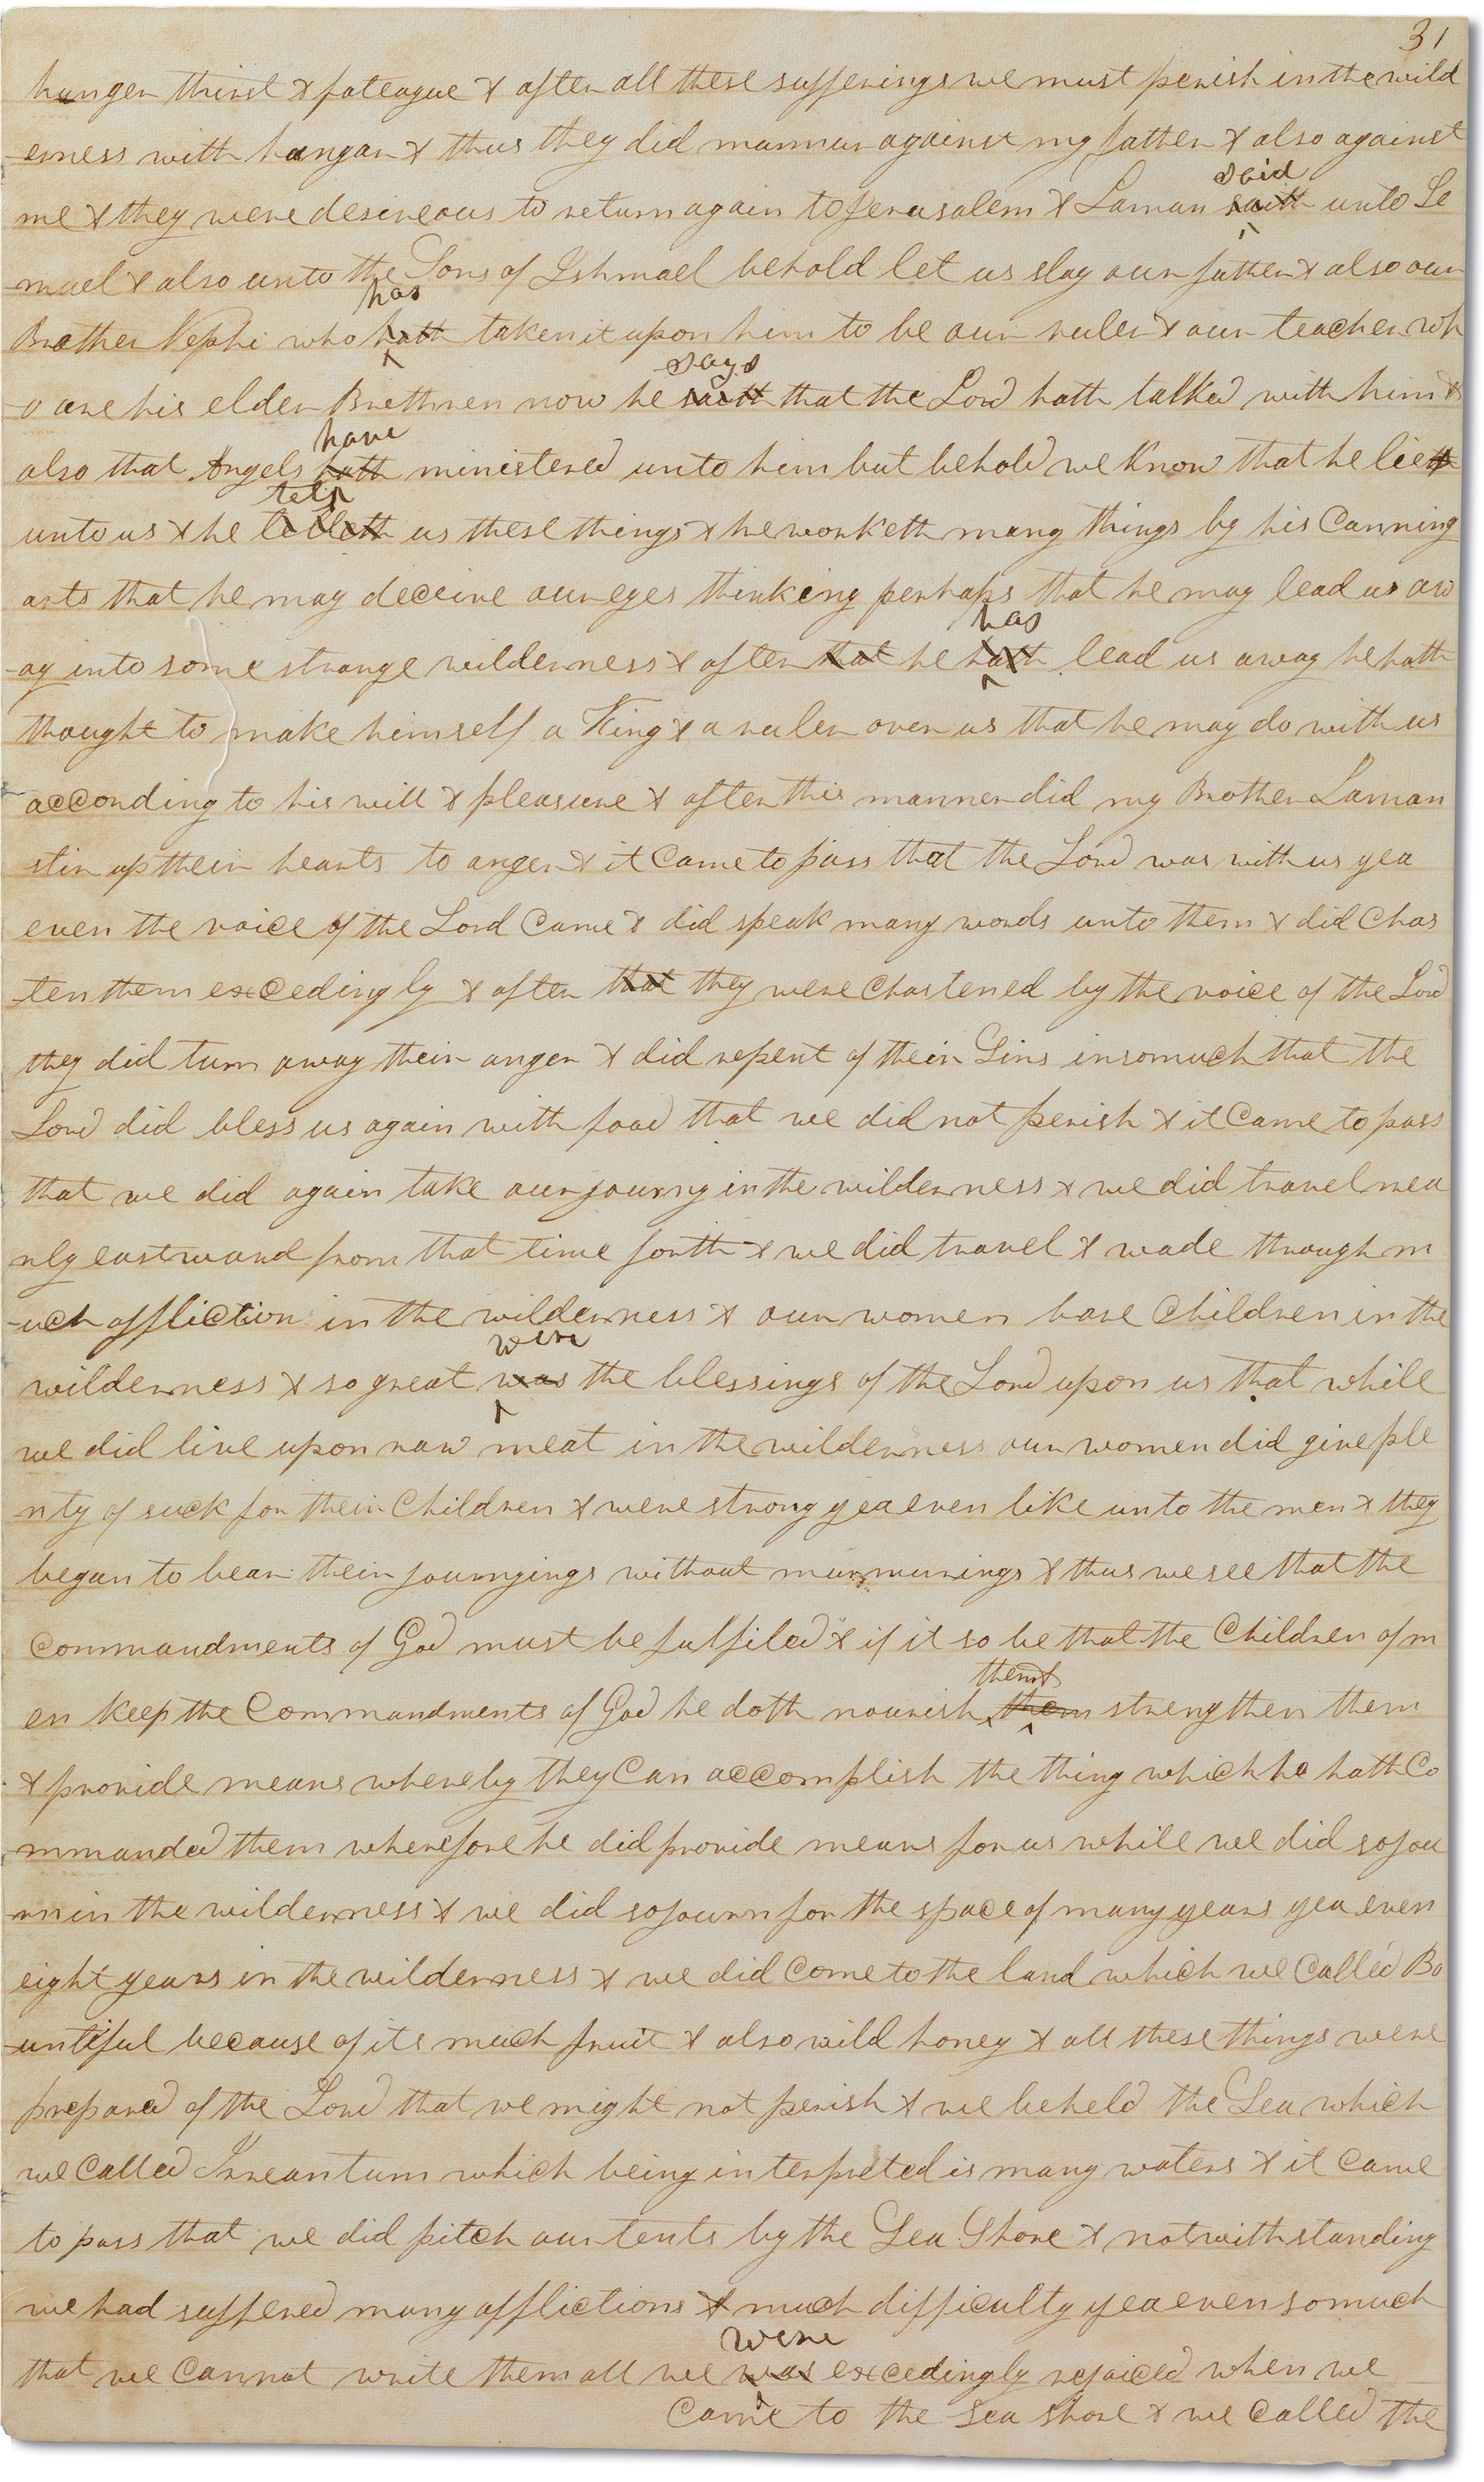 31
hunger thirst & fateague & after all these sufferings we must perish in the wild
erness with hungar & thus they did murmur against my father & also against
said
me & they were desireous to return again to Jerusalem & Laman saith unto Le
muel & also unto the Sons of Ishmael behold let us slay our father & also our
has
Brother Nephi who hath taken it upon him to be our ruler & our teacher wh
says
-o are his elder Brethren now he saith that the Lord hath talked with him &
have
also that Angels hath ministered unto him but behold we Know that he lieth
tells
unto us & he telleth us these things & he worketh many things by his Cunning
arts that he may deceive our eyes thinking perhaps that he may lead us aw
has
-ay into some strange wilderness & after that he hath lead us away he hath
thought to make himself a King & a ruler over us that he may do with us
according to his will & pleasure & after this manner did my Brother Laman
stir up their hearts to anger & it Came to pass that the Lord was with us yea
even the voice of the Lord Came & did speak many words unto them & did Chas
ten them excedingly & after that they were Chastened by the voice of the Lord
they did turn away their anger & did repent of their Sins insomuch that the
Lord did bless us again with food that we did not perish & it Came to pass
that we did again take our journy in the wilderness & we did travel nea
rly eastward from that time forth & we did travel & wade through m
-uch affliction in the wilderness & our women bare Children in the
were
wilderness & so great was the blessings of the Lord upon us that while
we did live upon raw meat in the wilderness our women did give ple
nty of suck for their Children & were strong yea even like unto the men & they
began to bear their journyings without murmurings & thus we see that the
Commandments of God must be fulfiled & if it so be that the Children of m
them &
en keep the Commandments of God he doth nourish them strengthen them
& provide means whereby they Can accomplish the thing which he hath Co
mmanded them wherefore he did provide means for us while we did sojou
rn in the wilderness & we did sojourn for the space of many years yea even
eight years in the wilderness & we did Come to the land which we Called Bo
-untiful because of its much fruit & also wild honey & all these things were
prepared of the Lord that we might not perish & we beheld the Sea which
we Called Irreantum which being interpreted is many waters & it Came
to pass that we did pitch our tents by the Sea Shore & notwithstanding
we had suffered many afflictions & much difficulty yea even so much
were
that we Cannot write them all we was excedingly rejoiced when we
Came to the sea shore & we Called the